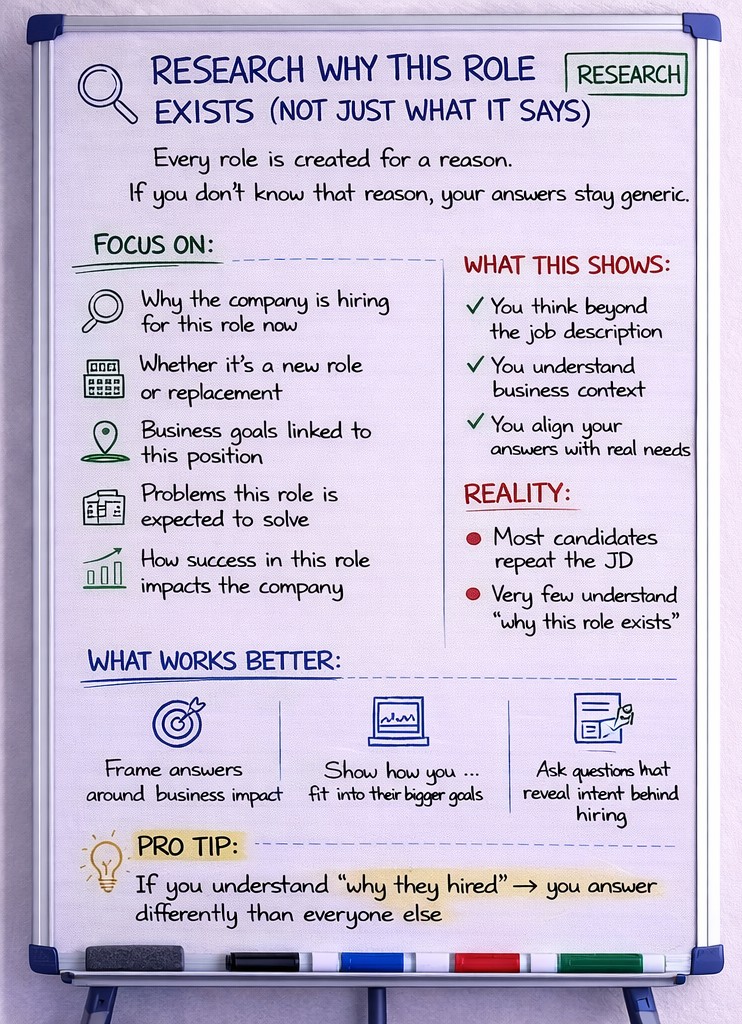 RESEARCH WHY THIS ROLE
EXISTS (NOT JUST WHAT IT SAYS)
RESEARCH
Every role is created for a reason.
If you don't know that reason, your answers stay generic.
FOCUS ON:
Why the company is hiring
for this role now
Whether it's a new role
or replacement
Business goals linked to
this position
Problems this role is
expected to solve
How success in this role
impacts the company
WHAT THIS SHOWS:
✓ You think beyond
the job description
✓ You understand
business context
✓ You align your
answers with real needs
REALITY:
● Most candidates
repeat the JD
● Very few understand
"why this role exists"
WHAT WORKS BETTER:
Frame answers
around business impact
Show how you ...
fit into their bigger goals
Ask questions that
reveal intent behind
hiring
PRO TIP:
If you understand "why they hired" → you answer
differently than everyone else